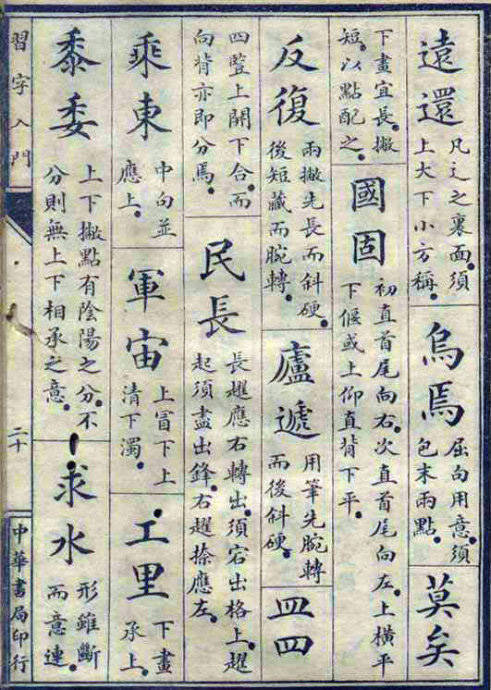 遠還
凡辶之裏面須
上大下小方稱。
烏焉
屈勾用意。須
包末兩點。
莫矣
下畫宜長。撇
短。以點配之。
國固
初直首尾向右。次直首尾向左。上橫平
下偃或上仰直背下平。
反復
兩撇先長而斜硬。
後短藏而腕轉。
廬遞
用筆先腕轉
而後斜硬。
皿四
四豎上開下合。而
向背亦即分焉。
民長
長趯應右轉出。須宕出格上。趯
起須盡出鋒。右趯捺應左。
乘東
中勾並
應上。
軍宙
上冒下上
清下濁。
工里
下畫
承上。
黍委
上下撇點有陰陽之分。不
分則無上下相承之意。
求水
形雖斷
而意連。
習字入門
二十
中華書局印行